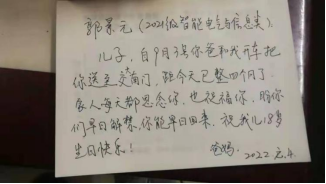 郭景元（2021级智能电气与信息类）
儿子，自9月3号你爸和我开车把
你送至交南门，距今天已整四个月了
家人每天都思念你，也祝福你，盼你
们早日解禁，你能早日回来，祝我儿18岁
生日快乐！
爸妈.
2022.元.4